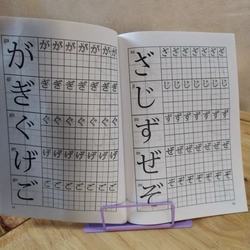 が が が が が が が が
ぎ ぎ ぎ ぎ ぎ ぎ ぎ ぎ
ぐ ぐ ぐ ぐ ぐ ぐ ぐ ぐ
げ げ げ げ げ げ げ げ
ご ご ご ご ご ご ご ご
ざ ざ ざ ざ ざ ざ ざ
じ じ じ じ じ じ じ
ず ず ず ず ず ず ず
ぜ ぜ ぜ ぜ ぜ ぜ ぜ
ぞ ぞ ぞ ぞ ぞ ぞ ぞ